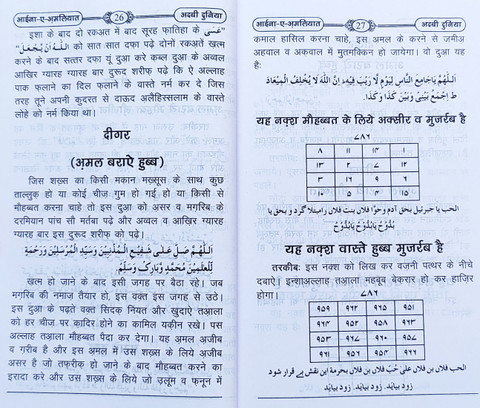 आईना-ए-अ़मलियात 26 अरबी दुनिया
इशा के बाद दो रकअ़त में बाद सूरह फ़ातिहा के عَسَى"
اللَّهُ أَنْ يَجْعَلَ" को सात सात दफा पढ़े दोनों रकअ़तें खत्म
करने के बाद सत्तर दफा यूं दुआ करे कब्ल दुआ के अव्वल
आखिर ग्यारह ग्यारह बार दुरूद शरीफ़ पढ़े कि ऐ अल्लाह
पाक फलाने का दिल फलाने के वास्ते नर्म कर दे जिस
तरह तूने अपनी कुदरत से दाऊद अलैहिस्सलाम के वास्ते
लोहे को नर्म किया था।
दीगर
(अ़मल बराऐ हुब्ब)
जिस शख्स का किसी मकान मख़्सूस के साथ कुछ
ताल्लुक हो या कोई चीज़ गुम हो गई हो या किसी से
मौहब्बत करना चाहे तो इस दुआ को असर व मग़रिब के
दरमियान पांच सौ मर्तबा पढ़े और अव्वल व आखिर ग्यारह
ग्यारह बार इस दुरूद को पढ़े।
اَللّٰهُمَّ صَلِّ عَلٰى شَفِيْعِ الْمُذْنِبِيْنَ وَسَيِّدِ الْمُرْسَلِيْنَ وَرَحْمَةٍ
لِّلْعٰلَمِيْنَ مُحَمَّدٍ وَّبَارِكْ وَسَلِّمْ۔
खत्म हो जाने के बाद इसी जगह पर बैठा रहे। जब
मग़रिब की नमाज़ तैयार हो, इस वक्त इस जगह से उठे।
इस दुआ के पढ़ते वक्त सिदक नियत और खुदाऐ तआ़ला
को हर चीज़ पर क़ादिर होने का कामिल यकीन रखे। पस
अल्लाह तआ़ला मौहब्बत पैदा कर देगा। यह अ़मल अ़जीब
व ग़रीब है और इस अ़मल में उस शख्स के लिये अ़जीब
असर है जो तफ़रीक़ हो जाने के बाद मौहब्बत करने का
इरादा करे और उस शख्स के लिये जो उलूम व फनून में
आईना-ए-अ़मलियात 27 अरबी दुनिया
कमाल हासिल करना चाहे, इस अमल के करने से जमीअ
अहवाल व अकवाल में मुतमक्किन हो जायेगा। वो दुआ यह
है:
اَللّٰهُمَّ يَاجَامِعَ النَّاسِ لِيَوْمٍ لَّا رَيْبَ فِيْهِ اِنَّ اللّٰهَ لَا يُخْلِفُ الْمِيْعَادَ
ط اِجْمَعْ بَيْنِيْ وَبَيْنَ كَذَا وَكَذَا۔
यह नक़्श मौहब्बत के लिये अक्सीर व मुजर्रब है
٧٨٦
٨ ١١ ١٤ ١
١٣ ٢ ٧ ١٢
٣ ١٦ ٩ ٦
١٠ ٥ ٤ ١٥
الحب یا جبرئیل بحق آدم وحوّا فلاں بنت فلاں رامبتلا گرد و بحق یا
بُدُّوْحُ یَابُدُّوْحُ یَابُدُّوْحُ
यह नक़्श वास्ते हुब्ब मुजर्रब है
तरकीब: इस नक़्श को लिख कर वज़नी पत्थर के नीचे
दबाऐं। इन्शाअल्लाह तआ़ला महबूब बेकरार हो कर हाजिर
होगा।
٧٨٦
الحب فلاں بن فلاں علی حب فلاں بن فلاں بحرمة این نقش بے قرار شود
زود بیاید، زود بیاید، زود بیاید